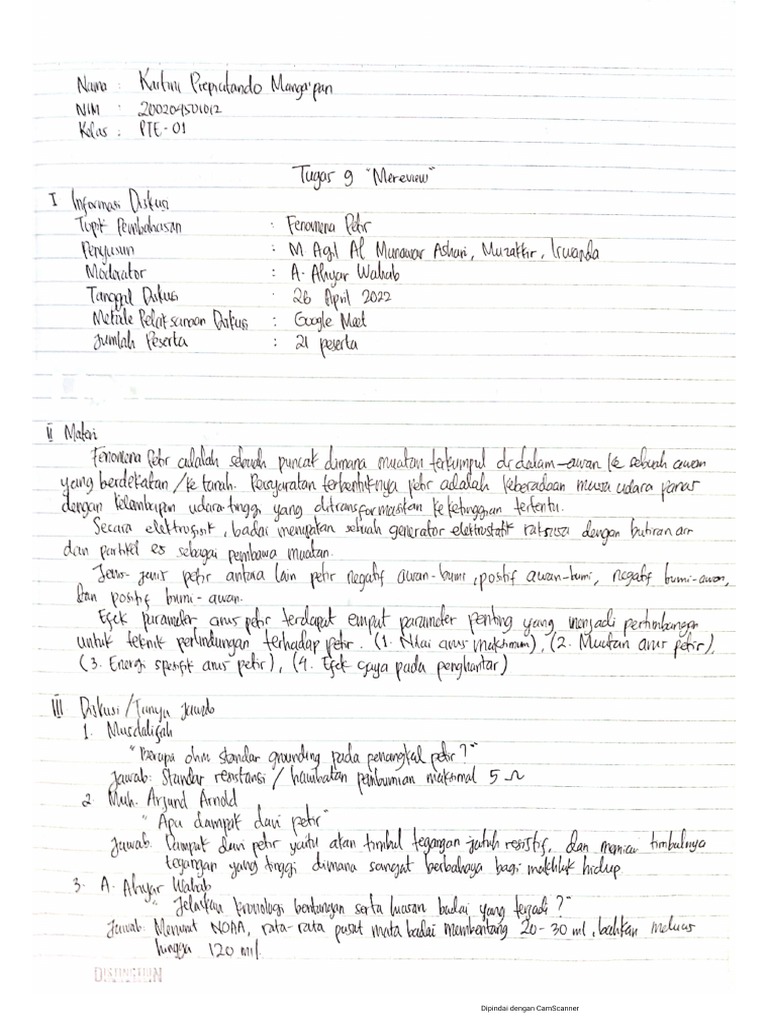 Nama : Kartini Prepratando Manga'pan
NIM : 200204501012
Kelas : PTE-01
Tugas 9 "Mereview"
I Informasi Diskusi
Topik Pembahasan : Fenomena Petir
Penyusun : M. Agil Al Munawar Ashari, Muzakkir, Irwanda
Moderator : A. Ahyar Wahab
Tanggal Diskusi : 26 April 2022
Metode Pelaksanaan Diskusi : Google Meet
Jumlah Peserta : 21 peserta
II Materi
Fenomena Petir adalah sebuah puncak dimana muatan terkumpul di dalam-awan ke sebuah awan
yang berdekatan/ke tanah. Persyaratan terbentiknya petir adalah keberadaan massa udara panas
dengan kelembapan udara tinggi yang ditransformasikan ke ketinggian tertentu.
Secara elektrofisik, badai merupakan sebuah generator elektrostatik raksasa dengan butiran air
dan partikel es sebagai pembawa muatan.
Jenis-jenis petir antara lain petir negatif awan-bumi, positif awan-bumi, negatif bumi-awan,
dan positif bumi-awan.
Efek parameter arus petir terdapat empat parameter penting yang menjadi pertimbangan
untuk teknik perlindungan terhadap petir. (1. Nilai arus maksimum), (2. Muatan arus petir),
(3. Energi spesifik arus petir), (4. Efek gaya pada penghantar)
III Diskusi/Tanya Jawab
1. Musdalifah
"Berapa ohm standar grounding pada penangkal petir?"
Jawab: Standar resistansi/hambatan pembumian maksimal 5 Ω
2. Muh. Arjund Arnold
"Apa dampak dari petir"
Jawab: Dampak dari petir yaitu akan timbul tegangan jatuh resistif, dan memicu timbulnya
tegangan yang tinggi dimana sangat berbahaya bagi makhluk hidup.
3. A. Ahyar Wahab
"Jelaskan kronologi bentangan serta luasan badai yang terjadi?"
Jawab: Menurut NOAA, rata-rata pusat mata badai membentang 20-30 mil, bahkan meluas
hingga 120 mil.
Dipindai dengan CamScanner